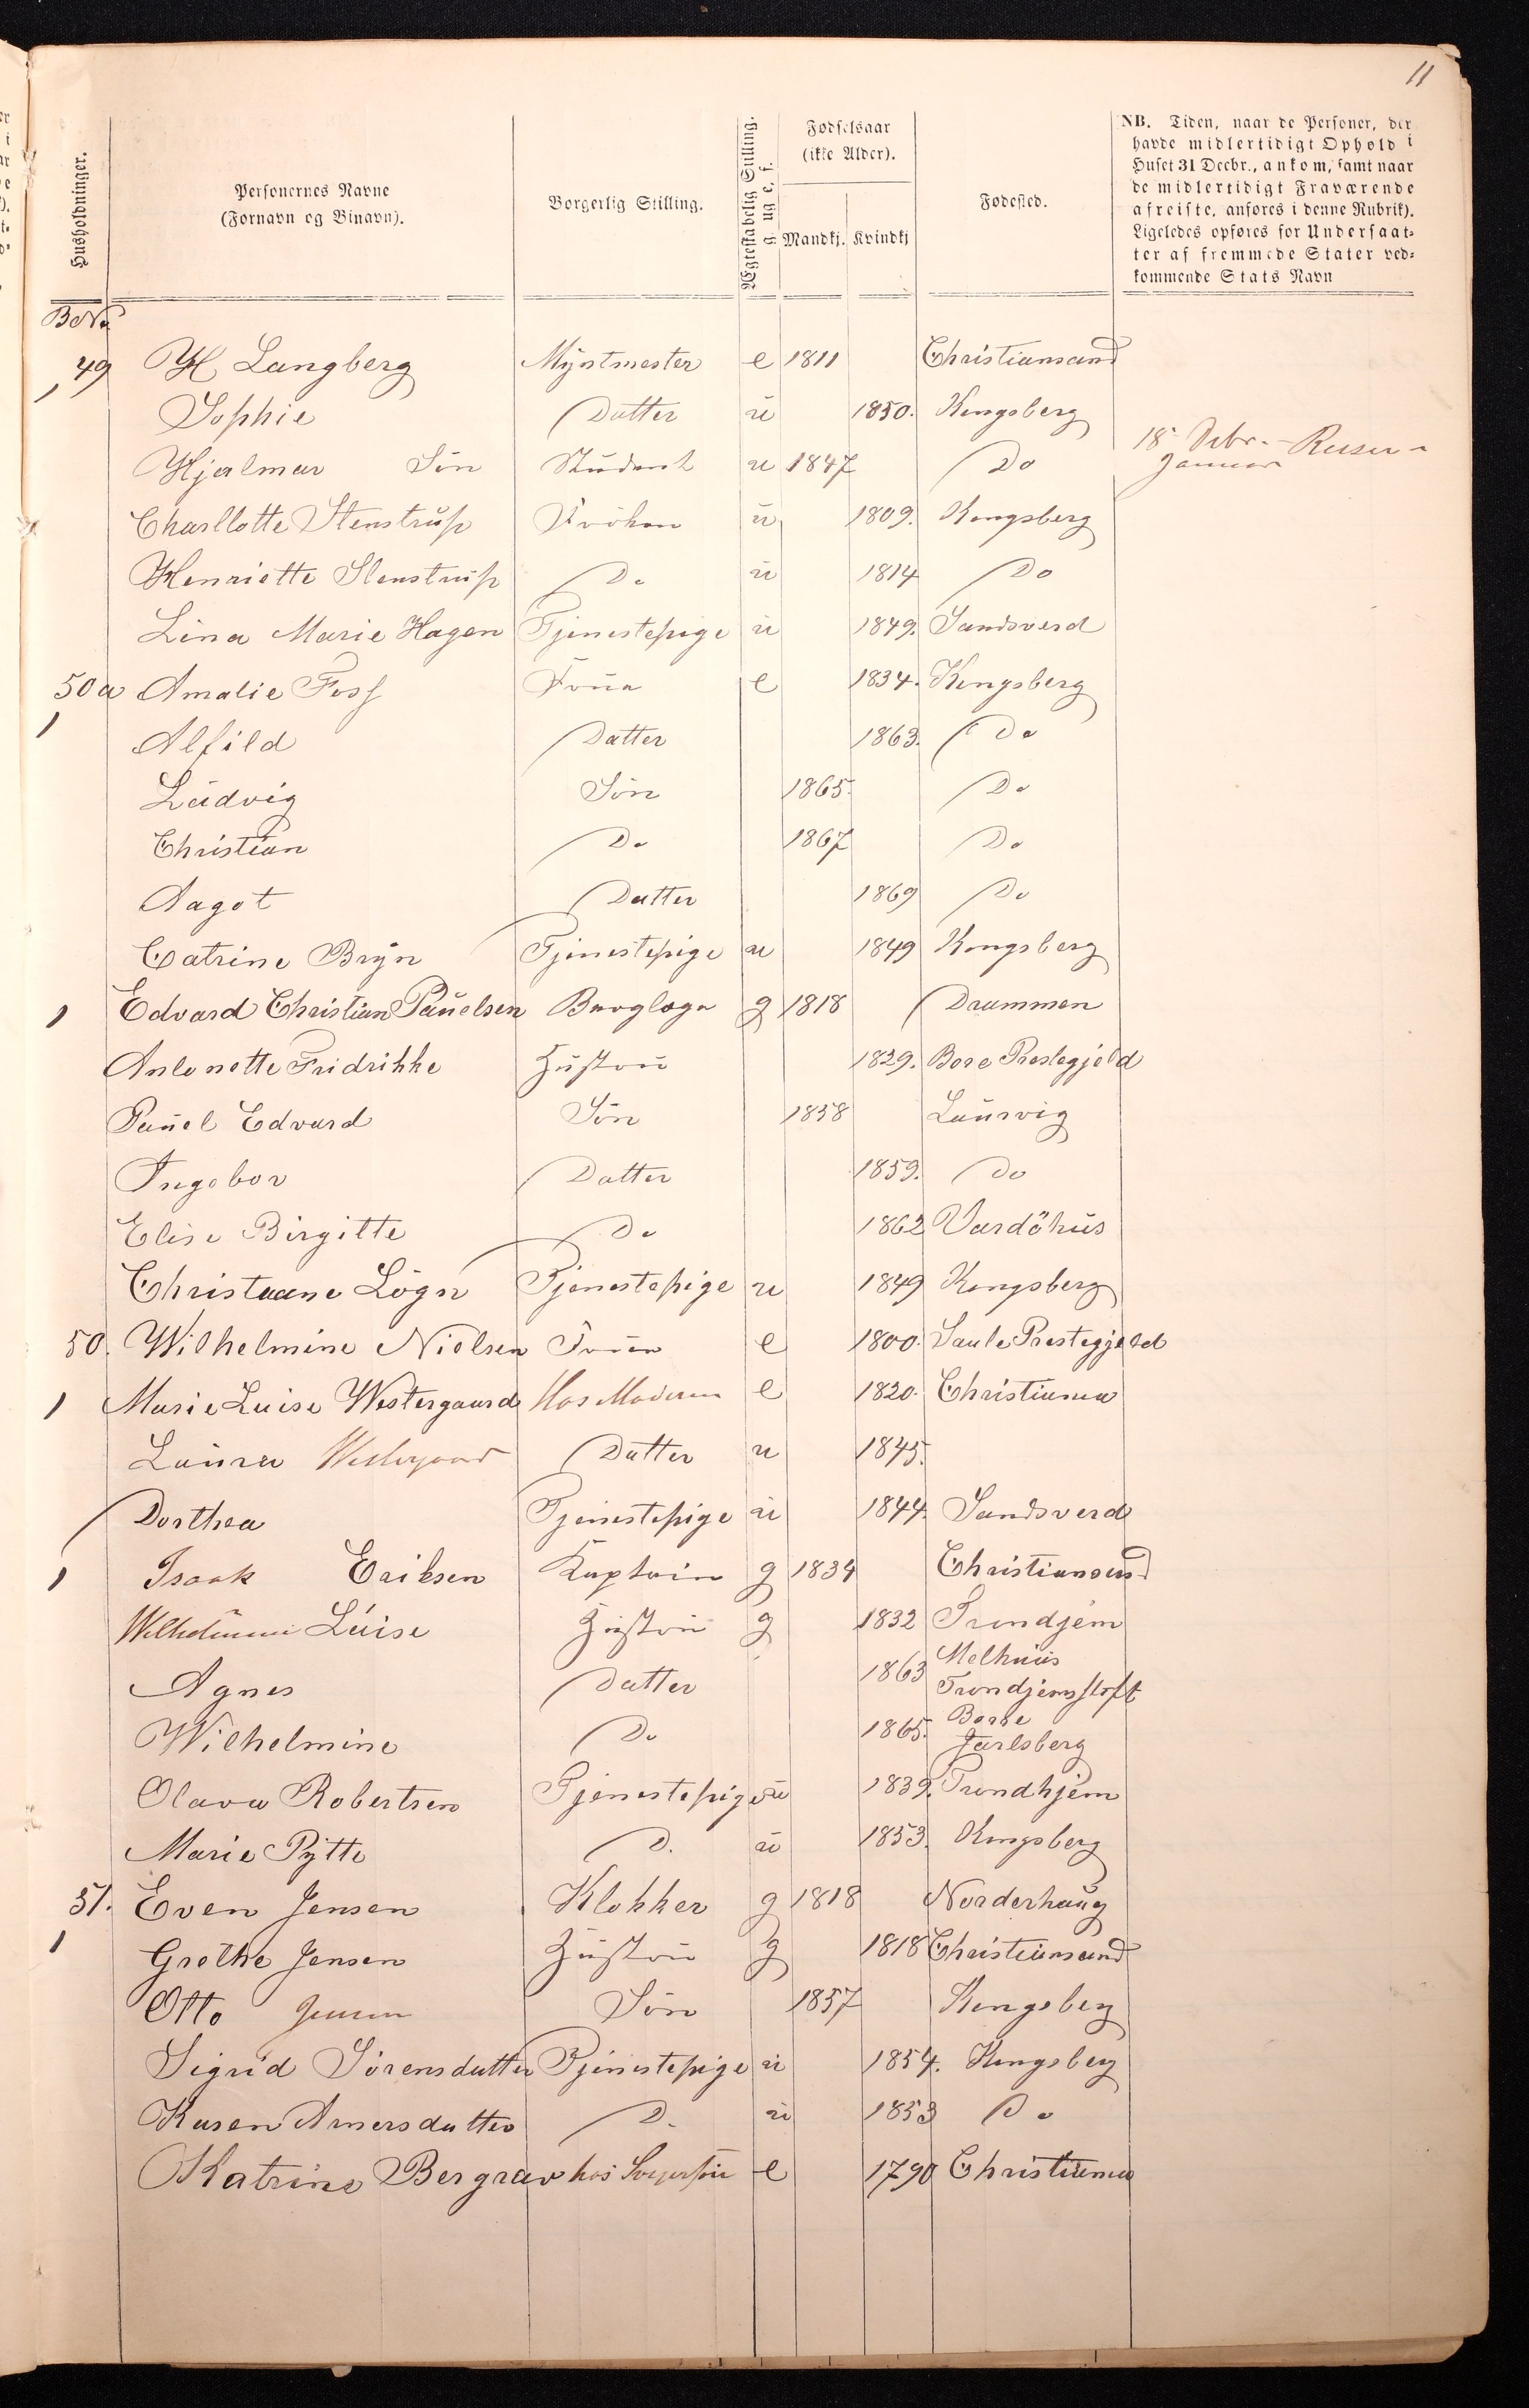 11
Husholdninger.
Personernes Navne
(Fornavn og Binavn).
Borgerlig Stilling.
Ægteskabelig Stilling.
g. ug e. f.
Fødselsaar
(ikke Alder).
Mandkj. Kvindkj
Fødested.
NB. Tiden, naar de Personer, der
havde midlertidigt Ophold i
Huset 31 Decbr., ankom, samt naar
de midlertidigt Fraværende
afreiste, anføres i denne Rubrik).
Ligeledes opføres for Undersaat-
ter af fremmede Stater ved-
kommende Stats Navn
49 H Langberg Myntmester e 1811 Christiansand
Sophie Datter u 1850. Kongsberg
Hjalmar Søn Student u 1847 Do 18 Debr. - Reiser
Januar
Charllotte Stenstrup Frøken u 1809. Kongsberg
Henriette Stenstrup Do u 1814 Do
Lina Marie Hagen Tjenestepige u 1849. Sandsverd
50a Amalie Foss Frua e 1834. Kongsberg
1
Alfild Datter 1863. Do
Ludvig Søn 1865. Do
Christian Do 1867 Do
Aagot Datter 1869 Do
Catrine Bryn Tjenestepige u 1849 Kongsberg
1 Edvard Christian Pauelsen Berglæge g 1818 Drammen
Antonette Fridrikke Hustru 1829. Bore Prestegjeld
Pauel Edvard Søn 1858 Laurvig
Ingebor Datter 1859. Do
Elise Birgitte Do 1862 Vardöhus
Christiane Lögn Tjenestepige u 1849 Kongsberg
50. Wilhelmine Nielsen Fruen e 1800. Saule Prestegjeld
1 Marie Luise Westergaard Hos Moderen e 1820. Christiania
Laura Westergaard Datter u 1845.
Dorthea Tjenestepige u 1844. Sandsverd
1 Isaak Eriksen Kaptain g 1834 Christiansund
Wilhelmine Luise Hustru g 1832 Trondjem
Agnes Datter 1863 Melhuus
Trondjems stift
Wilhelmine Do 1865. Borre
Jarlsberg
Olava Robertsen Tjenestepige u 1839. Trondhjem
Marie Pytte D. u 1853. Kongsberg
51. Even Jensen Klokker g 1818 Norderhaug
1
Grethe Jensen Hustru g 1818 Christiansand
Otto Jensen Søn 1857 Kongsberg
Sigrid Sörensdatter Tjenestepige u 1854. Kongsberg
Karen Arnersdatter D. u 1853 Do
Katrine Bergrav hos Svigersøn e 1790 Christiania